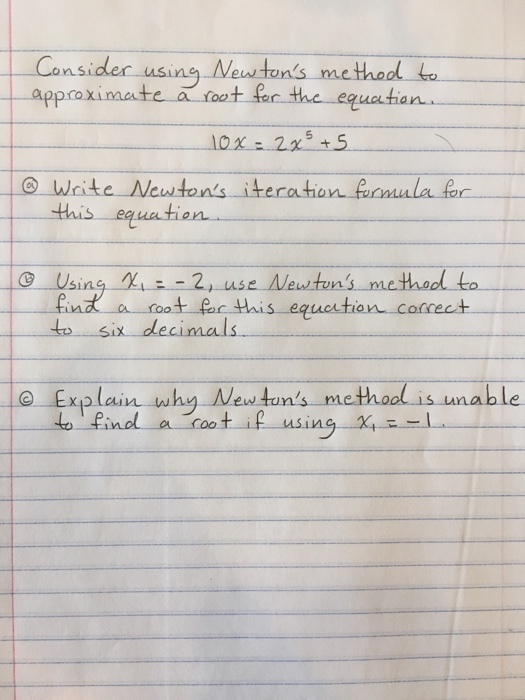 Consider using Newton's method to
approximate a root for the equation.
10x = 2x⁵ + 5
ⓐ Write Newton's iteration formula for
this equation.
ⓑ Using x₁ = -2, use Newton's method to
find a root for this equation correct
to six decimals.
ⓒ Explain why Newton's method is unable
to find a root if using x₁ = -1.